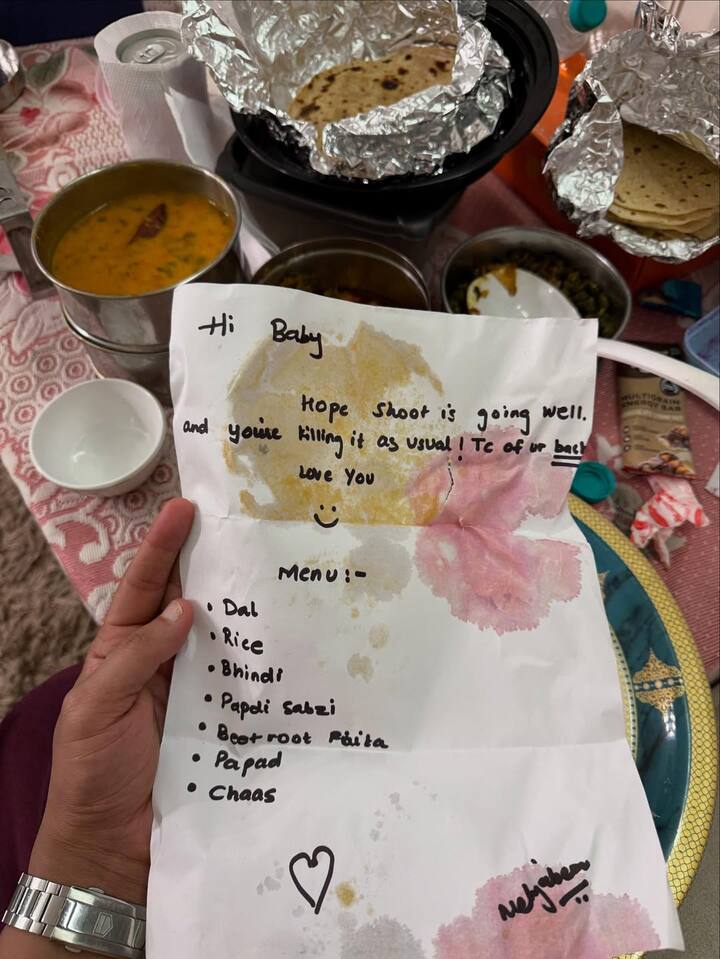 Hi Baby
Hope shoot is going well.
and you're killing it as usual! Tc of ur back
Love You
Menu:-
• Dal
• Rice
• Bhindi
• Papdi Sabzi
• Beetroot Raita
• Papad
• Chaas
MULTIGRAIN
ENERGY BAR